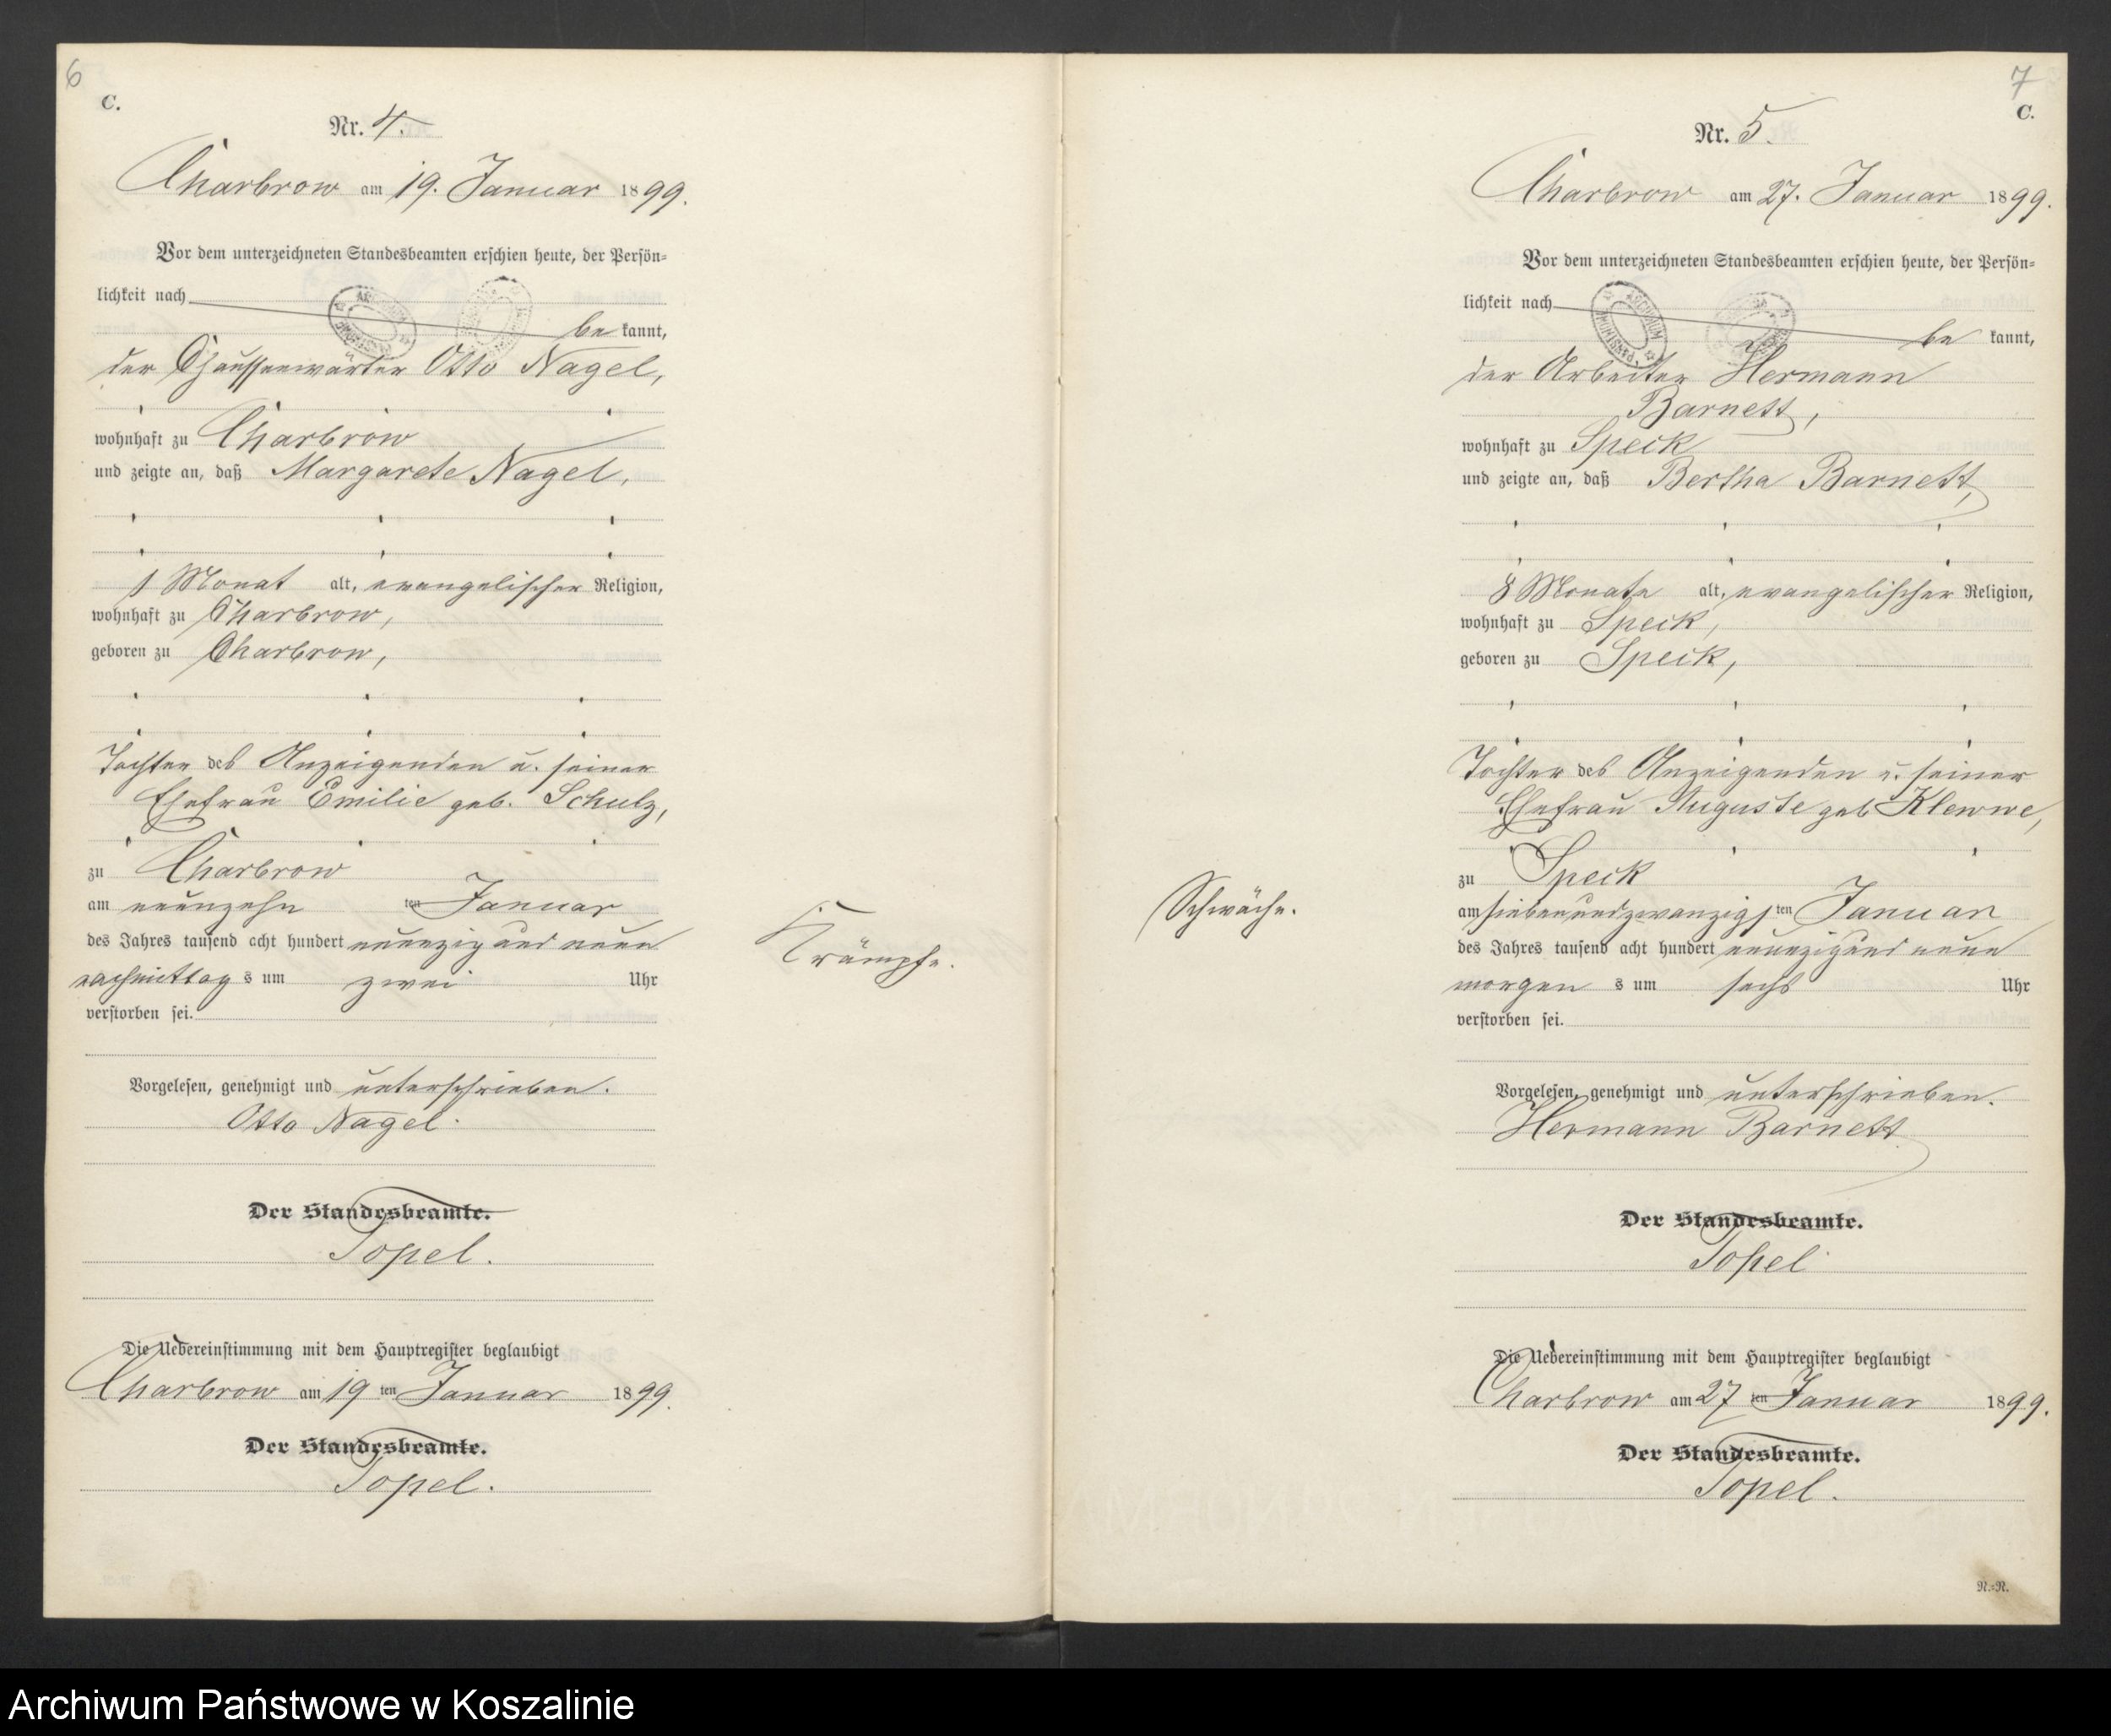 6
C.
Nr. 4.
Charbrow am 19. Januar 1899.
Vor dem unterzeichneten Standesbeamten erschien heute, der Persön=
lichkeit nach
be kannt,
der Chausseewärter Otto Nagel,
wohnhaft zu Charbrow
und zeigte an, daß Margarete Nagel,
1 Monat alt, evangelischer Religion,
wohnhaft zu Charbrow,
geboren zu Charbrow,
Tochter des Anzeigenden u. seiner
Ehefrau Emilie geb. Schulz,
zu Charbrow
am neunzehn ten Januar
des Jahres tausend acht hundert neunzig und neun
nachmittag s um zwei Uhr
verstorben sei.
Krämpfe.
Vorgelesen, genehmigt und unterschrieben.
Otto Nagel.
Der Standesbeamte.
Topel.
Die Uebereinstimmung mit dem Hauptregister beglaubigt
Charbrow am 19 ten Januar 1899.
Der Standesbeamte.
Topel.
7
C.
Nr. 5.
Charbrow am 27. Januar 1899.
Vor dem unterzeichneten Standesbeamten erschien heute, der Persön=
lichkeit nach
be kannt,
der Arbeiter Hermann
Barnett,
wohnhaft zu Speck
und zeigte an, daß Bertha Barnett,
8 Monate alt, evangelischer Religion,
wohnhaft zu Speck,
geboren zu Speck,
Tochter des Anzeigenden u. seiner
Ehefrau Auguste geb Klewwe,
zu Speck
am siebenundzwanzigs ten Januar
des Jahres tausend acht hundert neunzigund neun
morgen s um sechs Uhr
verstorben sei.
Schwäche.
Vorgelesen, genehmigt und unterschrieben.
Hermann Barnett
Der Standesbeamte.
Topel
Die Uebereinstimmung mit dem Hauptregister beglaubigt
Charbrow am 27 ten Januar 1899.
Der Standesbeamte.
Topel.
N.=N.
Archiwum Państwowe w Koszalinie